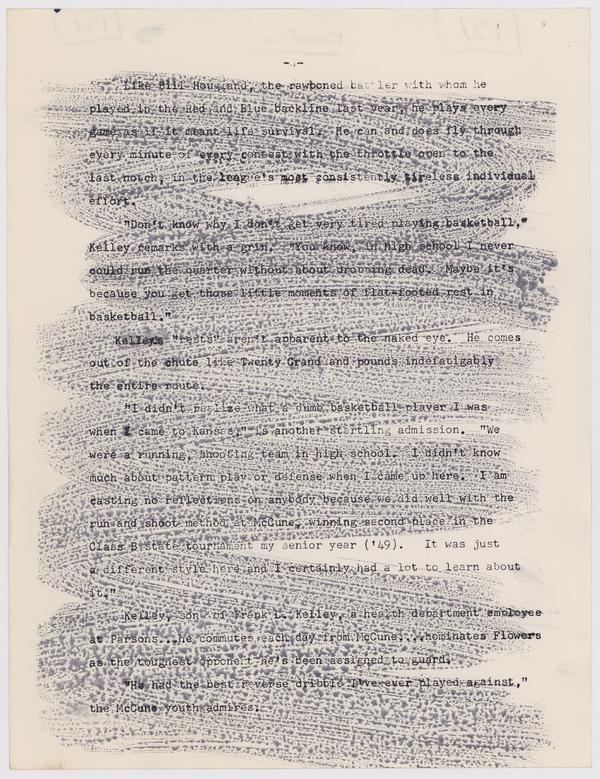 Like Bill Hougland, the rawboned battler with whom he
played in the Red and Blue backline last year, he plays every
game as if it meant life survival. He can and does fly through
every minute of every contest with the throttle open to the
last notch, in the league's most consistently tireless individual
effort.
"Don't know why I don't get very tired playing basketball,"
Kelley remarks with a grin. "You know, in high school I never
could run the quarter without about dropping dead. Maybe it's
because you get those little moments of flat-footed rest in
basketball."
Kelleys "rests" aren't apparent to the naked eye. He comes
out of the chute like Twenty Grand and pounds indefatigably
the entire route.
"I didn't realize what a dumb basketball player I was
when I came to Kansas," is another startling admission. "We
were a running, shooting team in high school. I didn't know
much about pattern play or defense when I came up here. I am
casting no reflections on anybody because we did well with the
run and shoot method at McCune, winning second place in the
Class B state tournament my senior year ('49). It was just
a different style here and I certainly had a lot to learn about
it."
Kelley, son of Frank L. Kelley, a health department employee
at Parsons...he commutes each day from McCune...nominates Flowers
as the toughest opponent he's been assigned to guard.
"He had the best reverse dribble I've ever played against,"
the McCune youth admires.